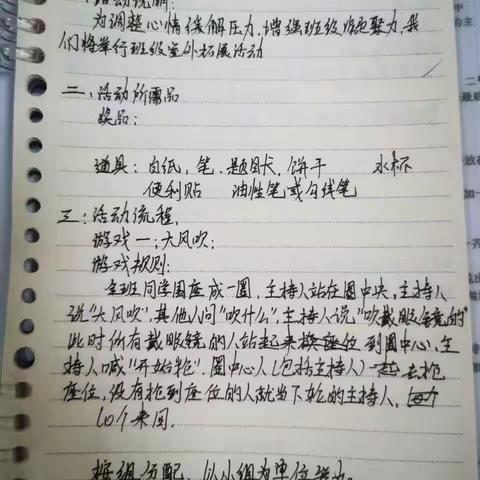 为调整心情缓解压力,增强班级凝聚力,我
们将举行班级室外拓展活动
二、活动所需品
奖品:
道具:白纸,笔、题目卡,饼干 水杯
便利贴 油性笔或勾线笔
三:活动流程.
游戏一:大风吹:
游戏规则:
全班同学围座成一圈,主持人站在圈中央,主持人
说"大风吹",其他人问"吹什么",主持人说"吹戴眼镜的"
此时所有戴眼镜的人站起来换座位到圈中心,主
持人喊"开始抢",圈中心人(包括主持人)一起去抢
座位,没有抢到座位的人就当下轮的主持人,
10个来回.
按组分配,以小组为单位